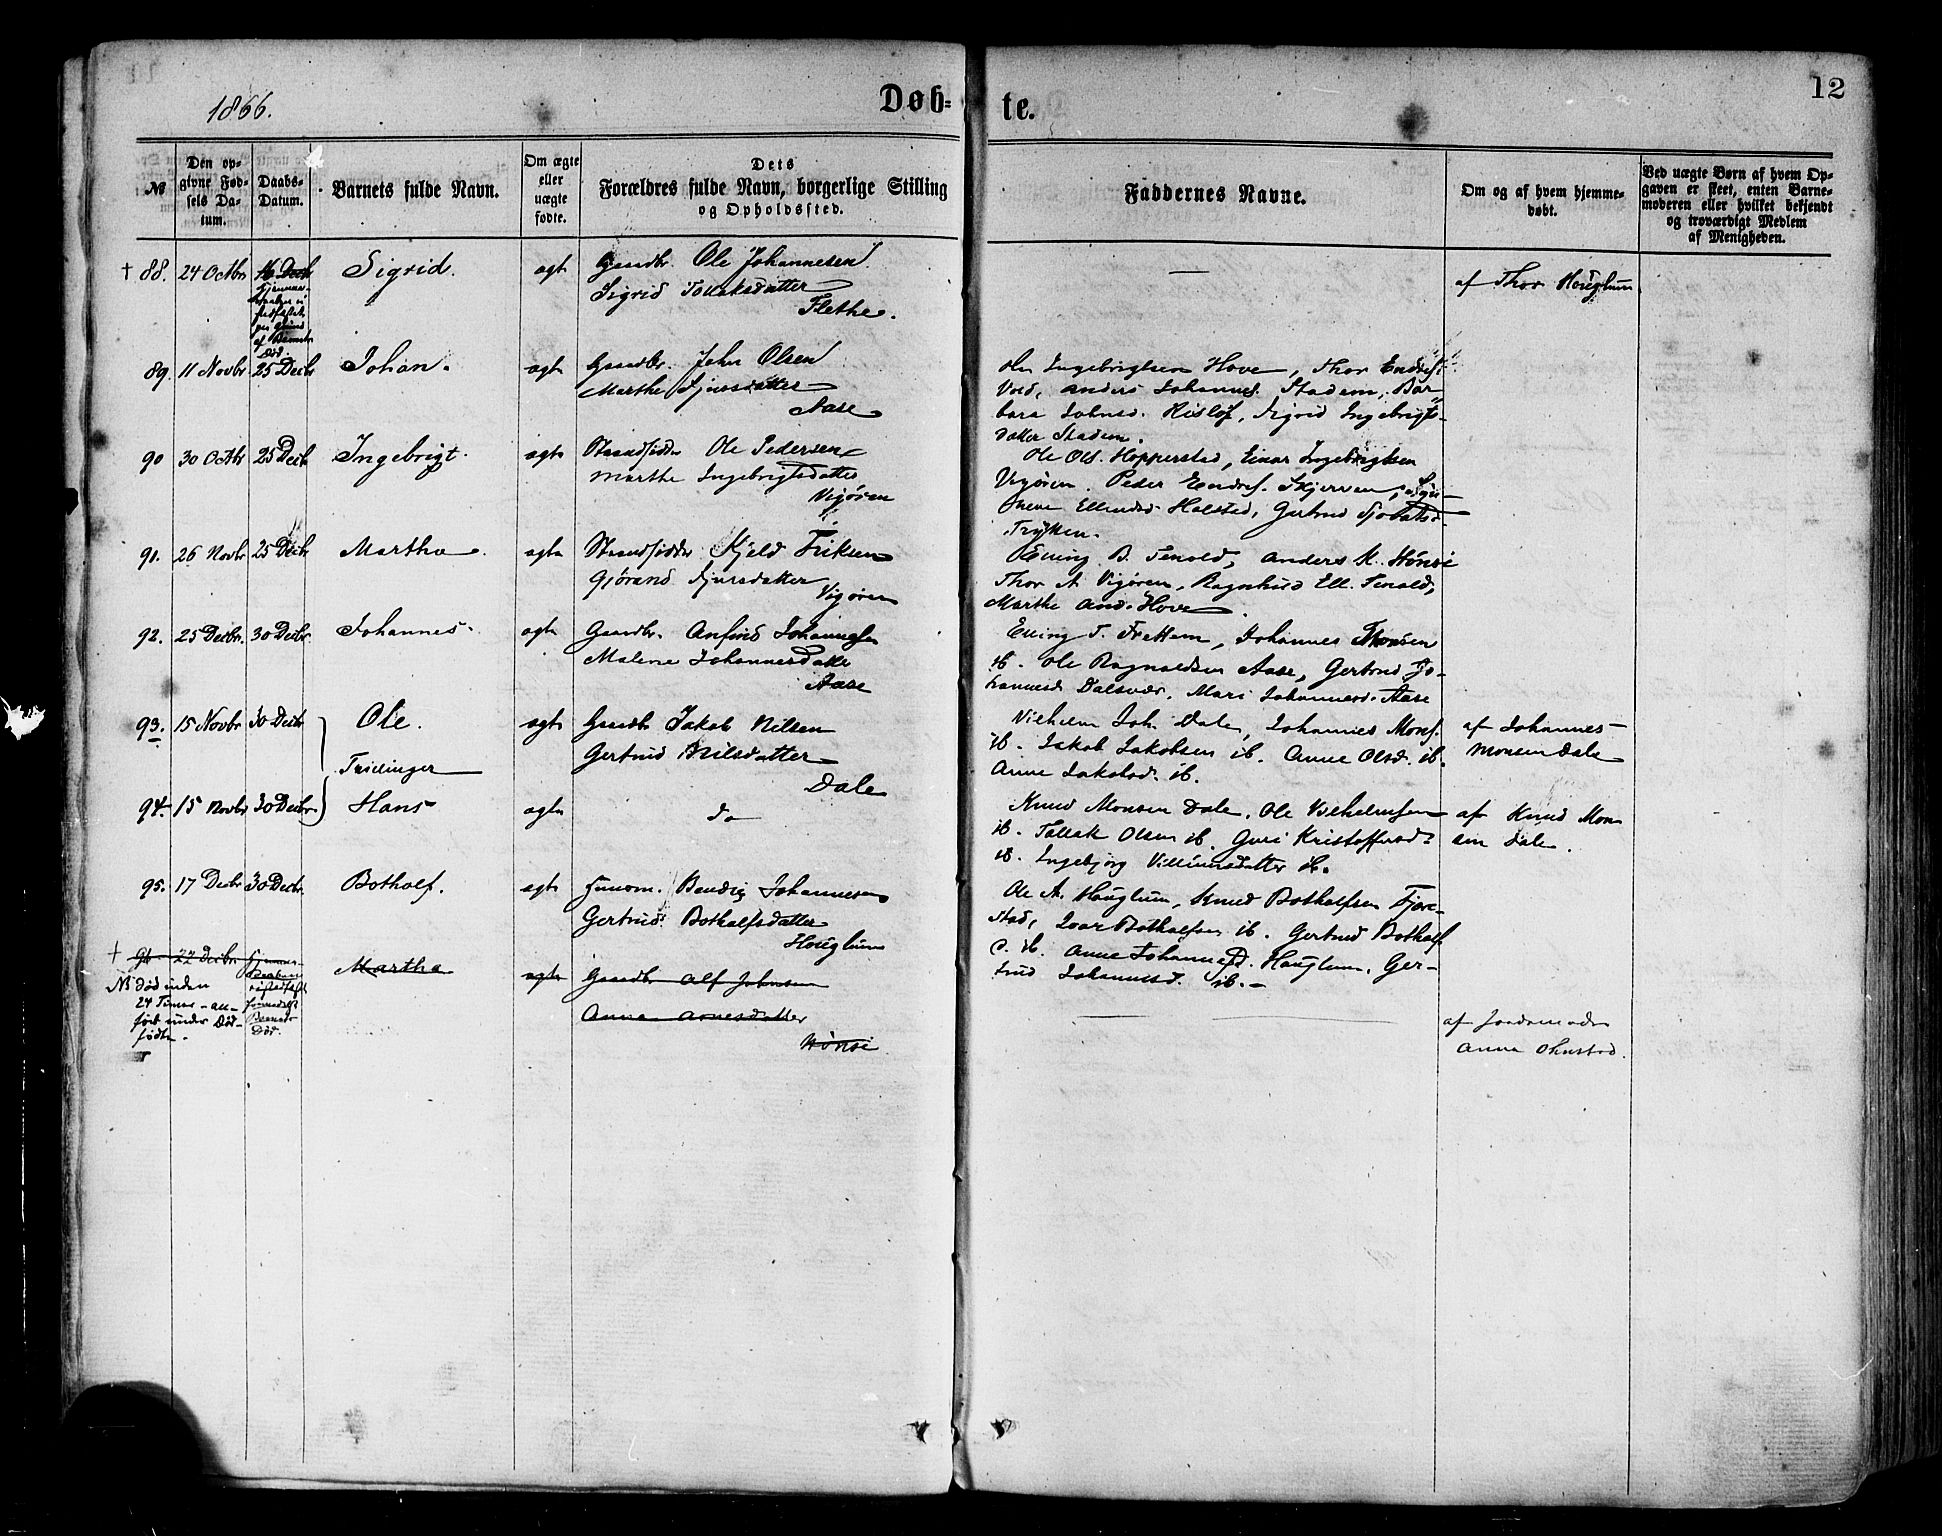 1866.
Døb-
te.
12
№
Den op-
givne Fød-
sels Da-
tum.
Daabs-
Datum.
Barnets fulde Navn.
Om ægte
eller
uægte
fødte.
Dets
Forældres fulde Navn, borgerlige Stilling
og Opholdssted.
Faddernes Navne.
Om og af hvem hjemme-
døbt.
Ved uægte Børn af hvem Op-
gaven er skeet, enten Barne-
moderen eller hvilket bekjendt
og troværdigt Medlem
af Menigheden.
† 88. 24 Octbr 16 Decb Sigrid. ægte Gaardbr. Ole Johannesen
Sigrid Tollaksdatter
Flethe.
af Barnets
Død.
af Thor Houglum
89. 11 Novbr 25 Decbr Johan. ægte Gaardbr. John Olsen
Marthe Sjursdatter
Aase
Ole Ingebrigtsen Hove, Thor Endres.
Vold, Anders Johannes. Stadem, Bar-
bara Johnsd. Risløf, Sigrid Ingebrigts-
datter Stadem.
90 30 Octbr 25 Decbr Ingebrigt. ægte Strandsidder Ole Pedersen
Marthe Ingebrigtsdatter
Vigøren
Ole Ols. Hopperstad, Einar Ingebrigtsen
Vigøren. Peder Endres. Skjerven,
Ellendsd. Halstad, Gertrud
91. 26 Novbr 25 Decbr Martha. ægte Strandsidder Kjeld Eriksen
Gjørand Sjursdatter
Vigøren
Elling B. Tenold, Anders K. Hønsi
Thor A. Vigøren, Ragnhild Ell. Tenold,
Marthe And. Hove.
92. 25 Decbr. 30 Decbr. Johannes. ægte Gaardbr. Anfind Johannesen
Malene Johannesdatter
Aase
Elling T. Frettem, Johannes Monsen
ib. Ole Ragnvaldsen Aase, Gertrud Jo-
hannesd Dalsvær. Mari Johannesd. Aase
93. 15 Novbr 30 Decbr Ole. ægte Gaardbr Jakob Nilsen
Gertrud Nilsdatter
Dale
Tvillinger
Vilhelm Joh. Dale, Johannes Mons.
ib. Jakob Jakobsen ib. Anne Olsd. ib.
Anne Jakobsd. ib.
af Johannes
Monsen Dale
94. 15 Novbr 30 Decbr. Hans ægte do
Knud Monsen Dale. Ole Vilhelmsen
ib. Tollak Olsen ib. Guri Kristoffersd.
ib. Ingebjørg Villumsdatter ib.
af Knud Mon
sen Dale.
95. 17 Decbr 30 Decbr. Botholf. ægte Huusm. Bendix Johannesen
Gertrud Botholfsdatter
Houglum
Ole A. Houglum, Knud Botholfsen Fjære-
stad, Ivar Botholfsen ib. Gertrud Botholf
D. ib. Anne Johannesd. Houglum, Ger-
trud Johannesd. ib.
† 96 22 Decbr Martha ægte Gaardbr Alf Johnsen
Anna Arnesdatter
Hønsi
NB død inden
24 Timer - an-
ført under Død-
fødte.
Barnets
Død.
af Jordemoder
Anna Ohnstad.